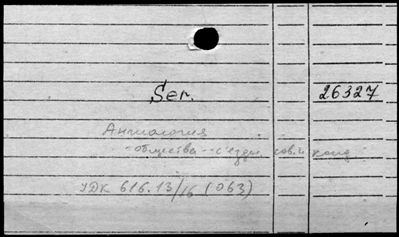 Ser. 26327
Ангиология
- общества - съезды сов. и конф
УДК 616.13/16 (063)